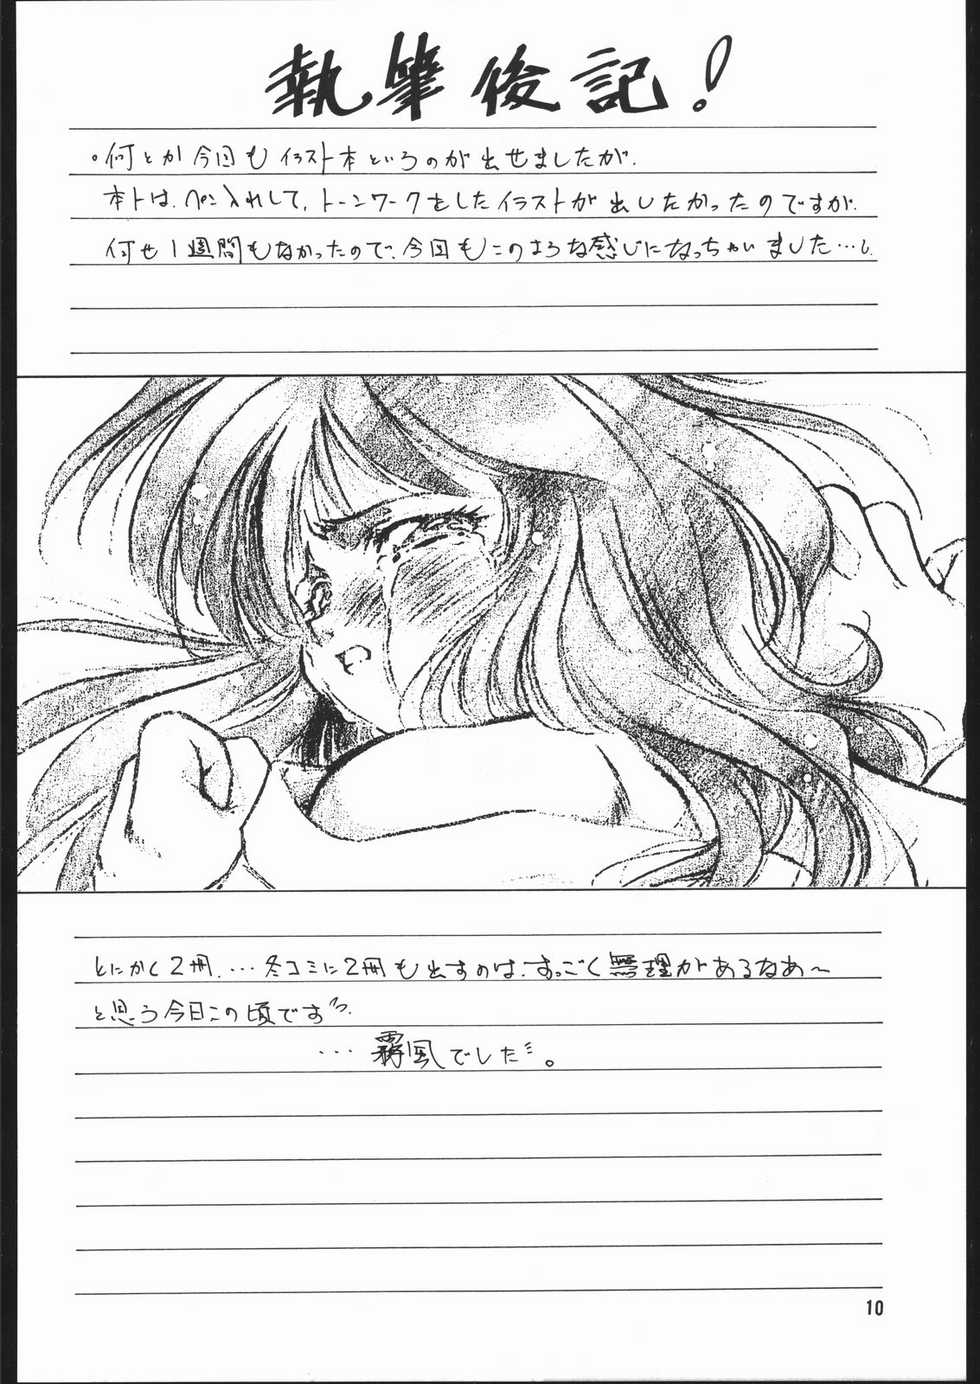 執筆後記！
。何とか今回もイラスト本というのが出せましたが、
本トは、ペン入れして、トーンワークをしたイラストが出したかったのですが、
何せ1週間もなかったので、今回もこのような感じになっちゃいました…。
とにかく2冊、…冬コミに2冊も出すのは、すっごく無理があるなあ〜
と思う今日この頃です
…霧風でした。
10